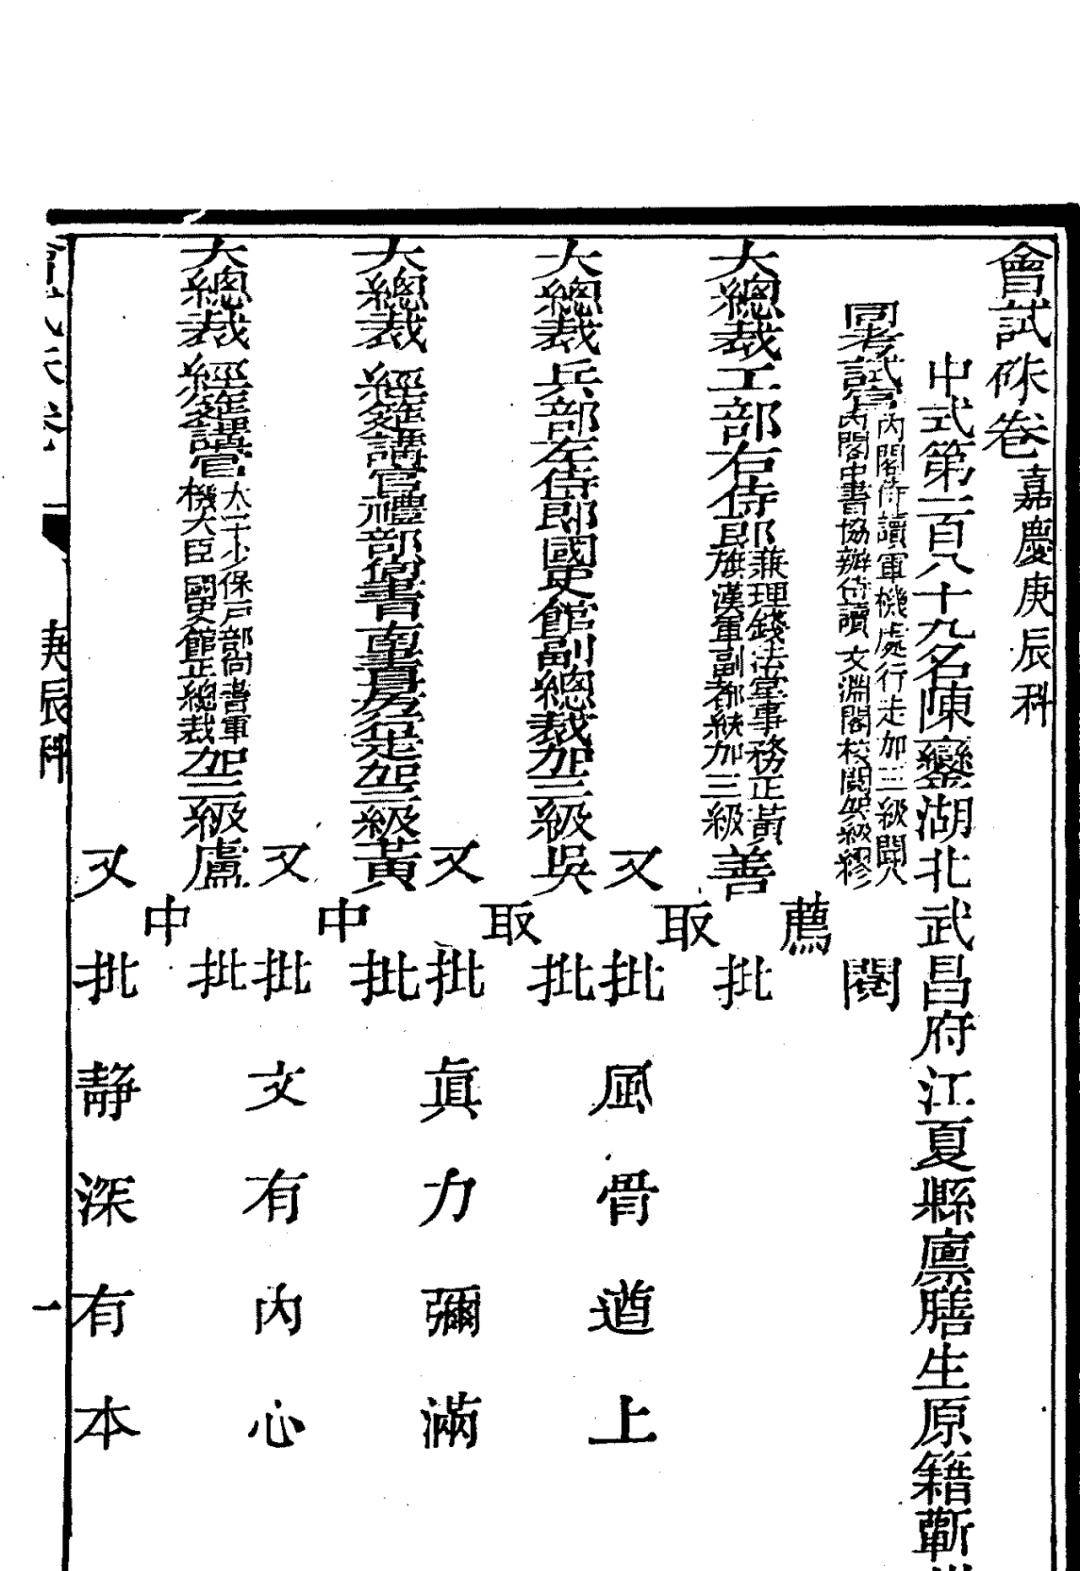 會試硃卷 嘉慶庚辰科
中式第二百八十九名陳鑾湖北武昌府江夏縣廩膳生原籍蘄
同考試官 內閣侍讀軍機處行走加三級聞人
內閣中書協辦侍讀文淵閣校閱加級繆 閱
薦
大總裁工部右侍郎 兼理錢法堂事務正黃
旗漢軍副都統加三級善 批
取
又批 風骨遒上
大總裁兵部左侍郎國史館副總裁加三級吳 批
取
又批 眞力彌滿
大總裁 經筵講官禮部尙書南書房行走加三級黃 批
中
又批 文有內心
大總裁 經筵講官 太子少保戶部尙書軍
機大臣國史館正總裁加三級盧 批
中
又批 靜深有本
會試硃卷 庚辰科 一